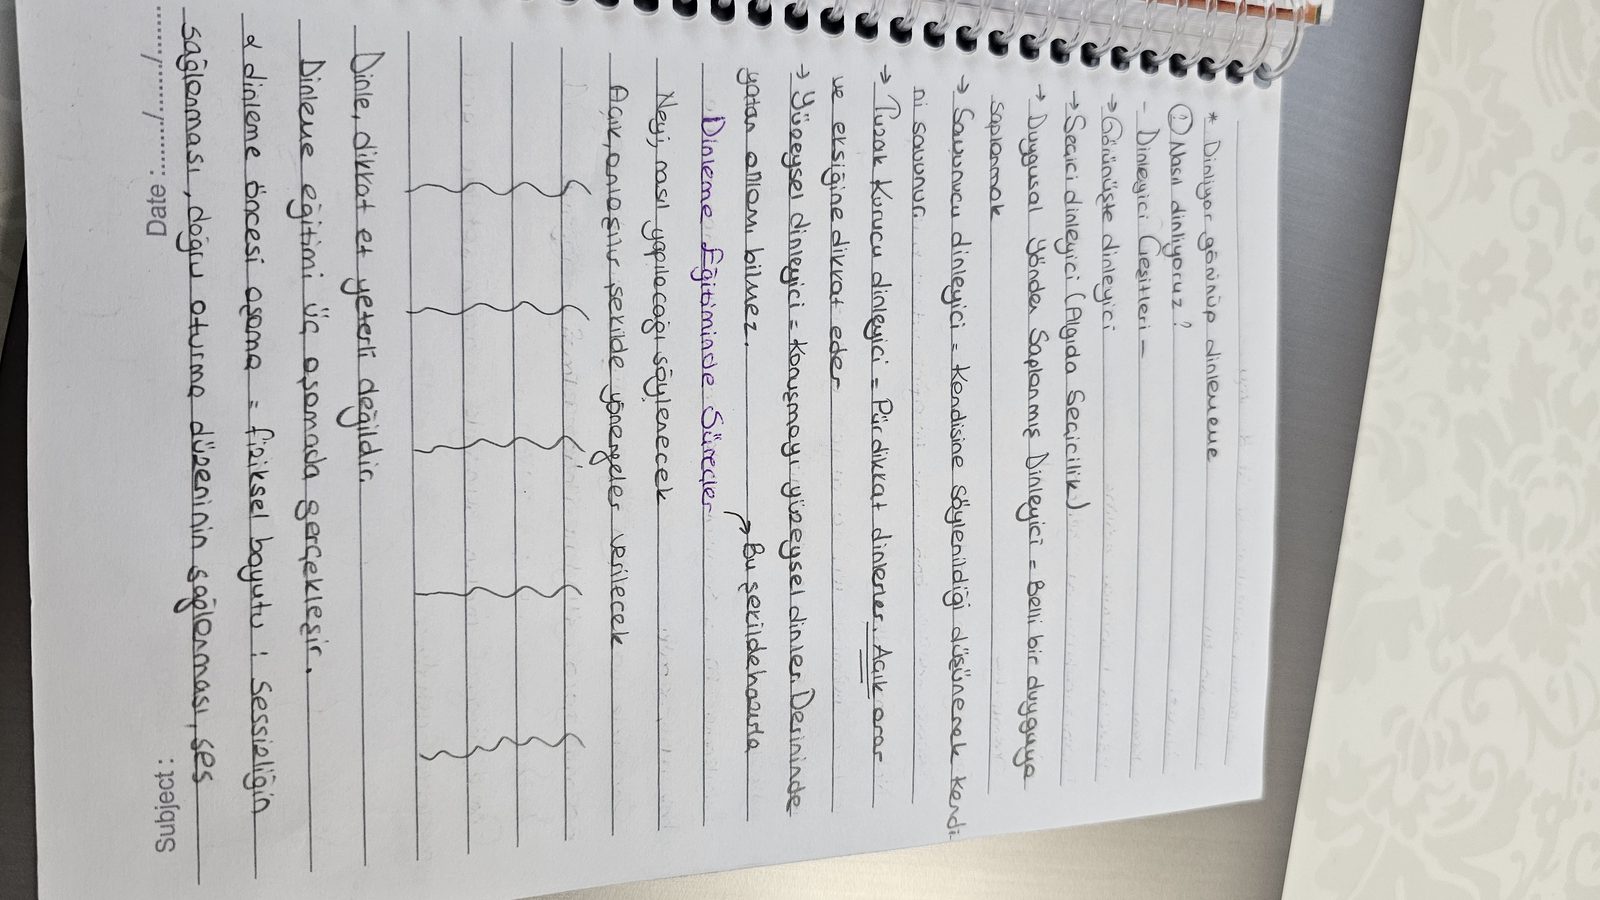 * Dinliyor görünüp dinlememe
① Nasıl dinliyoruz?
- Dinleyici Çeşitleri -
→ Görünüşte dinleyici
→ Seçici dinleyici (Algıda Seçicilik)
→ Duygusal Yönden Saplanmış Dinleyici = Belli bir duyguya
saplanmak
→ Savunucu dinleyici = Kendisine söylenildiği düşünerek kendi
ni savunur.
→ Tuzak Kurucu dinleyici = Pür dikkat dinlerler. Açık arar
ve eksiğine dikkat eder
→ Yüzeysel dinleyici = Konuşmayı yüzeysel dinler. Derininde
yatan anlamı bilmez.
→ Bu şekilde hazırla
Dinleme Eğitiminde Süreçler
Neyi, nasıl yapılacağı söylenecek
Açık, anlaşılır şekilde yönergeler verilecek
Dinle, dikkat et yeterli değildir.
Dinleme eğitimi üç aşamada gerçekleşir.
α dinleme öncesi aşama = fiziksel boyutu : sessizliğin
sağlanması, doğru oturma düzeninin sağlanması, ses
Subject :
Date : ....../....../......